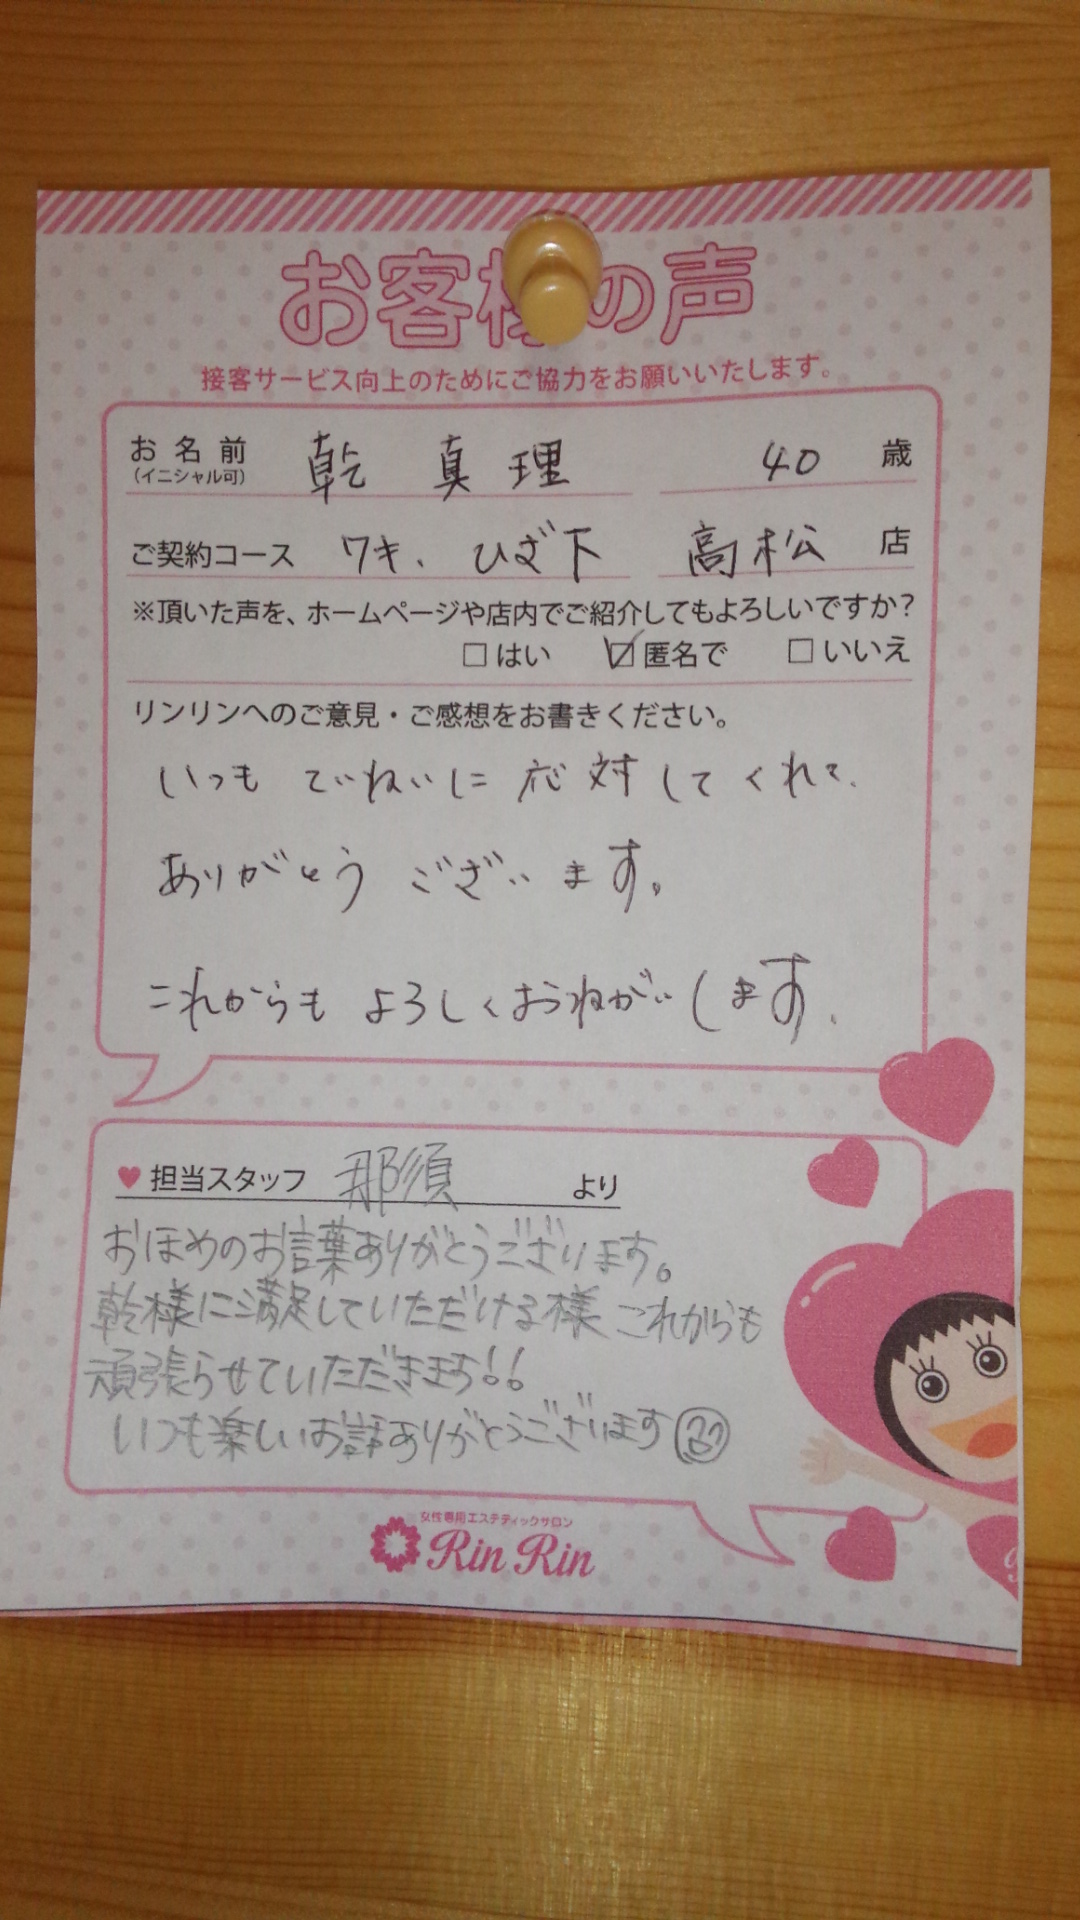 お客様の声
接客サービス向上のためにご協力をお願いいたします。
お名前 乾 真理 40 歳
(イニシャル可)
ご契約コース ワキ、ひざ下 高松 店
※頂いた声を、ホームページや店内でご紹介してもよろしいですか?
□はい ☑匿名で □いいえ
リンリンへのご意見・ご感想をお書きください。
いつも ていねいに 応対してくれて、
ありがとう ございます。
これからも よろしくおねがいします。
♥担当スタッフ 那須 より
おほめのお言葉ありがとうございます。
乾様に満足していただける様 これからも
頑張らせていただきます!!
いつも楽しいお話ありがとうございます
女性専用エステティックサロン
Rin Rin